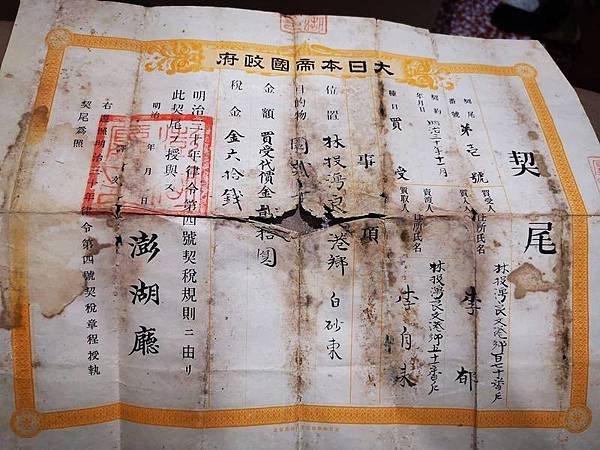 大日本帝國政府
契尾
契尾番號
第壱號
契約年月日
明治三十年十一月
種目
買受
買受人住所氏名
林投澳良文港鄉百七十番戶
李郁
賣渡人
質取人住所氏名
林投澳良文港鄉五十二番戶
李自來
事項
位置
林投灣良文港鄉
白砂東
目的物
園
金額
買受代價金貳拾圓
稅金
金六拾錢
明治三十年律令第四號契稅規則ニ由リ
此契尾ヲ授與ス
明治 年 月 日
澎湖廳
右遵照明治三十年律令第四號契稅章程授執
契尾為照